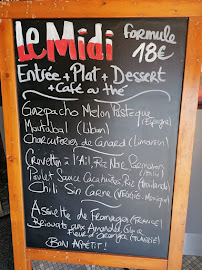 Le Midi
Formule
18€
Entrée + Plat + Dessert
+ Café ou thé
Gazpacho Melon Pastèque
(Espagne)
Moutabal (Liban)
Charcuteries de Canard (Limousin)
Crevette à l'Ail, Riz Noir, Parmesan
(Italie)
Poulet Sauce Cacahuètes, Riz (Thaïlande)
Chili Sin Carne (Mexique)
Assiette de Fromages (FRANCE)
Briouats aux Amandes, Glace
Fleur d'oranger (TUNISIE)
BON APPÉTIT !